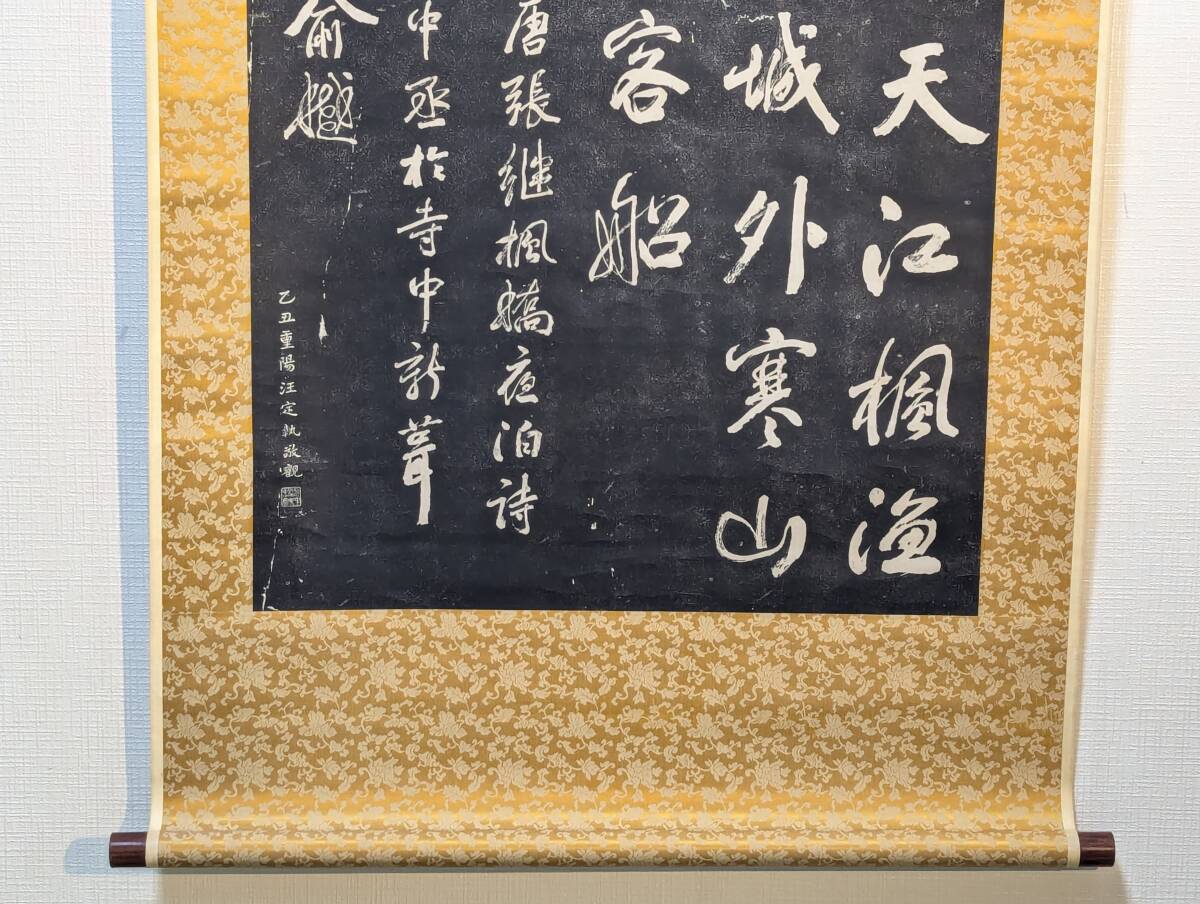 天江楓漁
城外寒山
客船
唐張継楓嬌夜泊詩
中丞於寺中新葺
俞樾
乙丑重陽汪定執敬觀